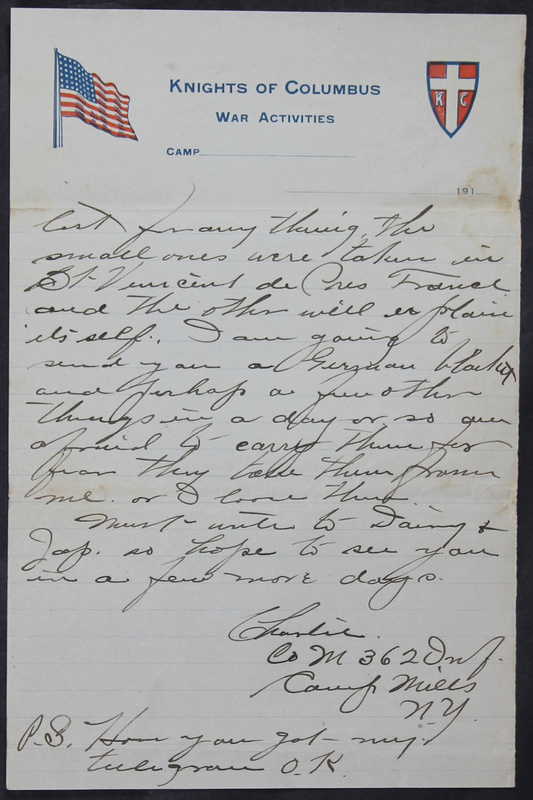 KNIGHTS OF COLUMBUS
WAR ACTIVITIES
K C
CAMP
191
lost for any thing, the
small ones were taken in
St Vincent de Pres France
and the other will explain
its self. I am going to
send you a German blanket
and perhap a few other
things in a day or so am
afraid to carry them for
fear they take them from
me or I loose them
Must write to Dainy &
Jap. so hope to see you
in a few more days.
Charlie.
Co M 362 Inf.
Camp Mills
NY.
P.S. Hope you got my
telegram O.K.